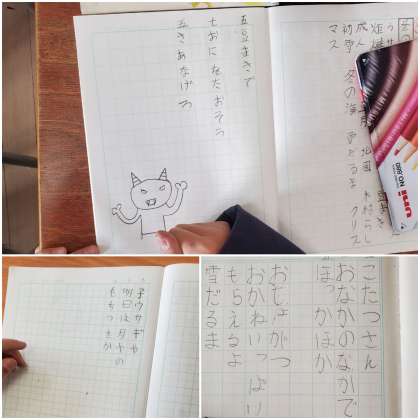 初雪 冬の海 雪だるま クリス
マス
五 豆まきで
七 おにをたおそう
五 さあなげろ
uni NO.880
子ウサギや
明日は月夜の
もちつきか
こたつさん
おなかのなかで
ほっかほか
おしょがつ
おかねいっぱい
もらえるよ
雪だるま